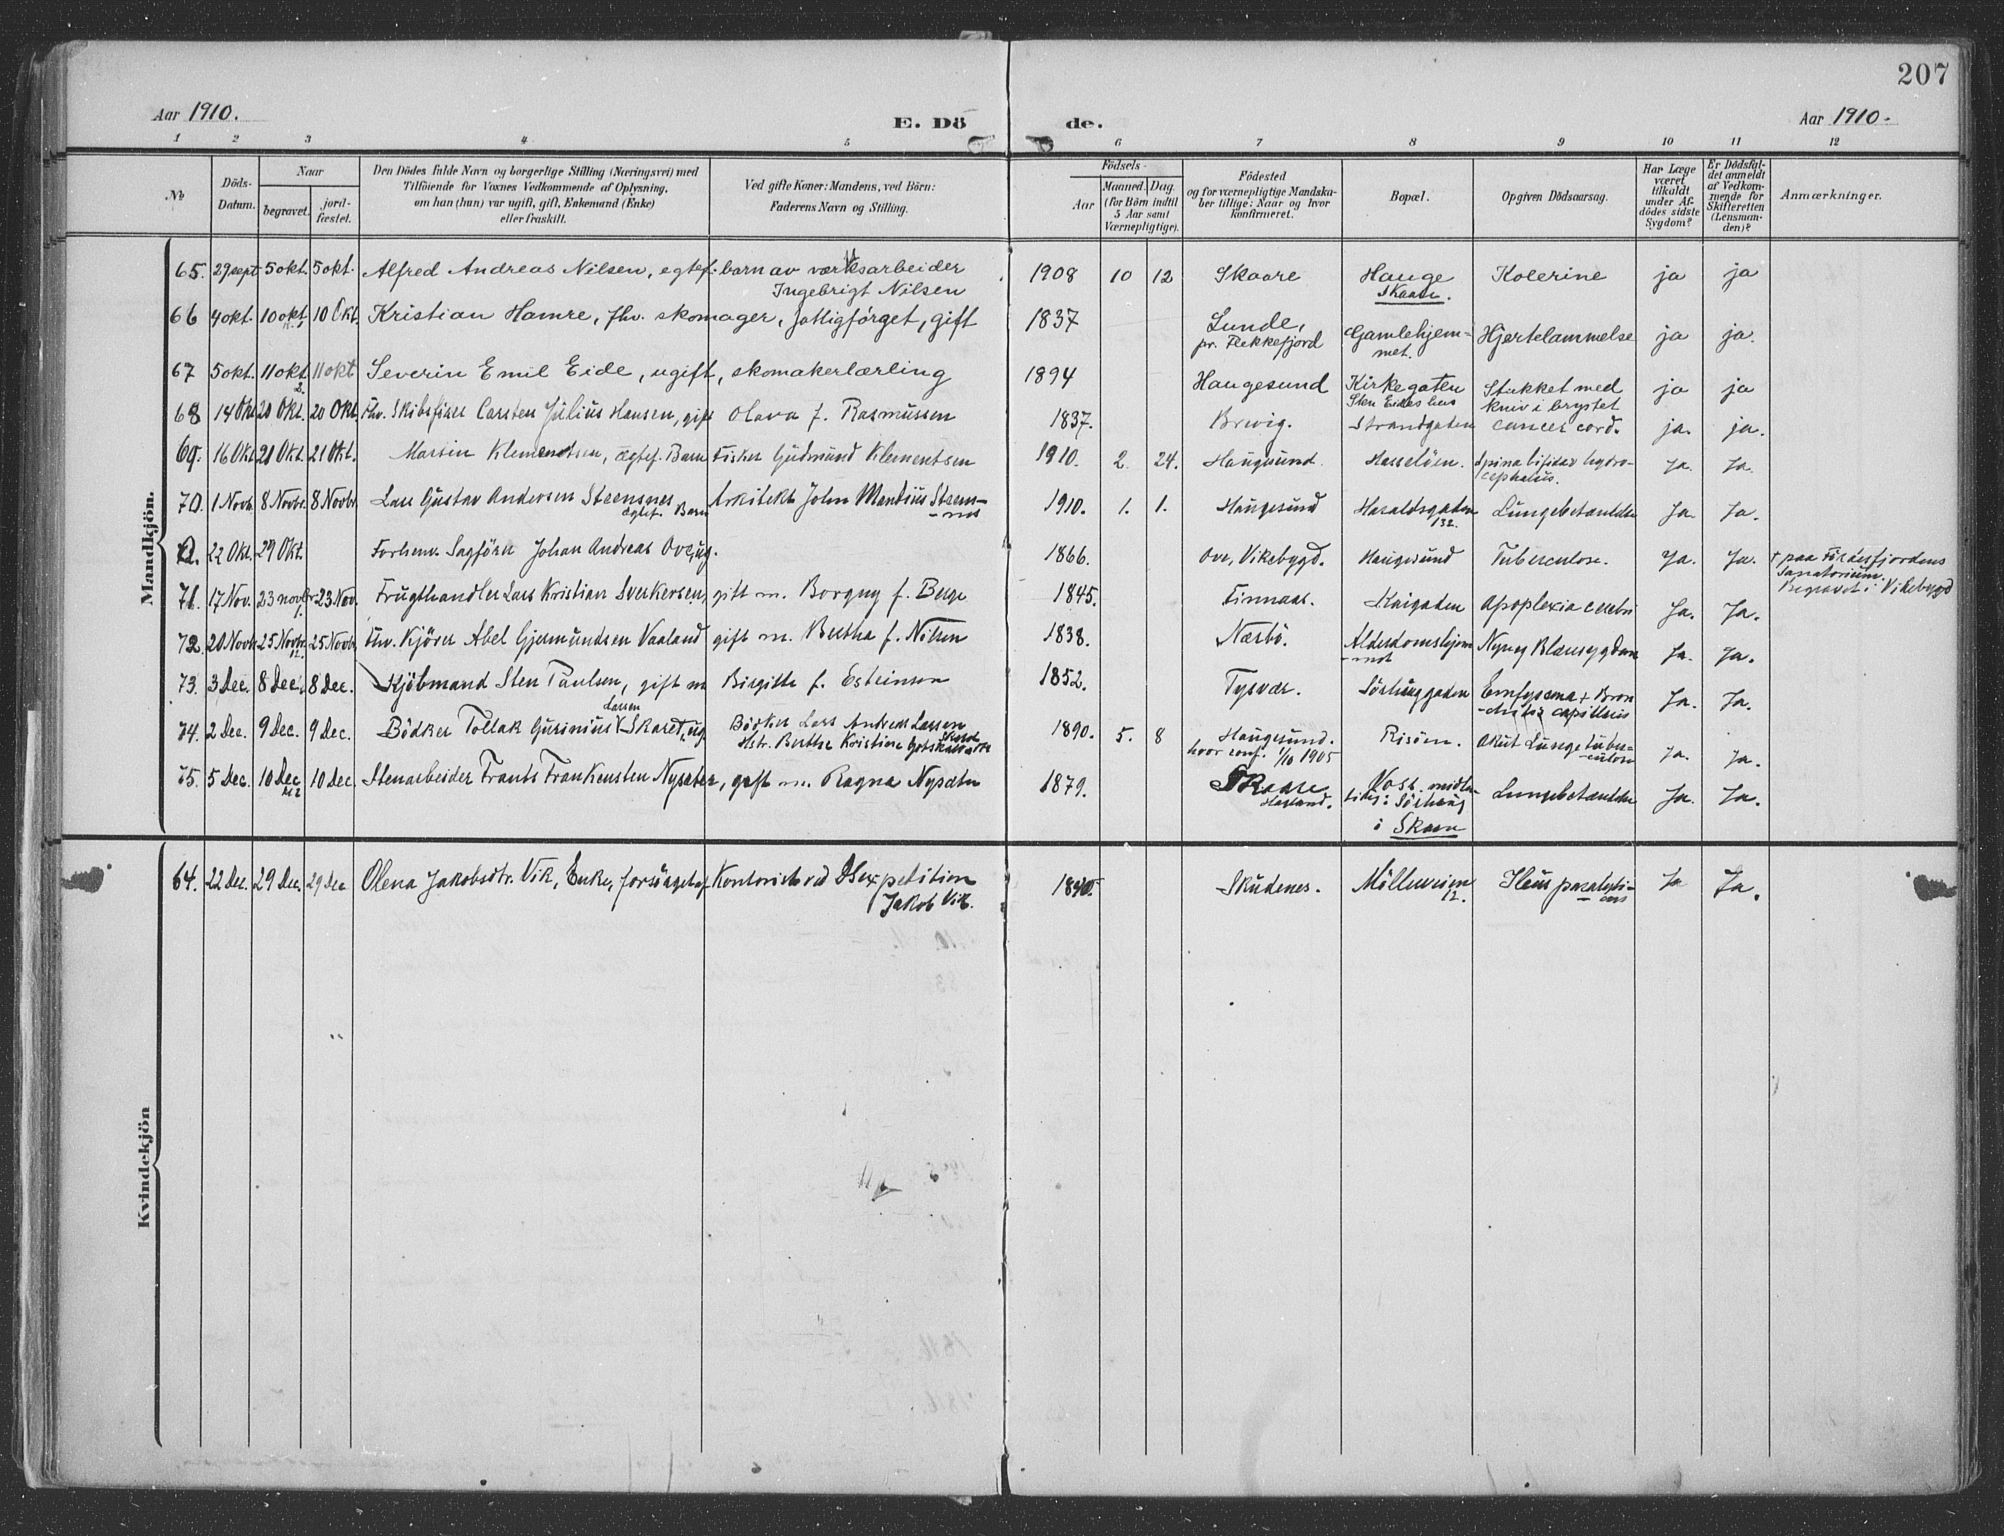 207
Aar 1910. E. Dö de. Aar 1910.
1 2 3 4 5 6 7 8 9 10 11 12
№ Döds-Datum. Naar begravet. jord-fæstet. Den Dödes fulde Navn og borgerlige Stilling (Næringsvei) med Tilföiende for Voxnes Vedkommende af Oplysning, om han (hun) var ugift, gift, Enkemand (Enke) eller fraskilt. Ved gifte Koner: Mandens, ved Börn: Faderens Navn og Stilling. Födsels- Aar Maaned. Dag. (for Börn indtil 5 Aar samt Værnepligtige). Födested og for værnepligtige Mandska-ber tillige: Naar og hvor konfirmeret. Bopæl. Opgiven Dödsaarsag. Har Læge været tilkaldt under Af-dödes sidste Sygdom? Er Dödsfal-det anmeldt af Vedkom-mende for Skifteretten (Lensman-den)? Anmærkninger.
Mandkjön.
65. 29 sept 5 okt 5 okt. Alfred Andreas Nilsen, egtef. barn av værksarbeider 1908 10 12 Skaare Hauge Kolerine ja ja
Ingebrigt Nilsen Skaare.
66 4 okt. 10 okt. 10 Okt. Kristian Hamre, fhv. skomager, fattigförget, gift 1837 Lunde, Gamlehjem- Hjertelammelse ja ja.
pr. Flekkefjord met.
67 5 okt. 11 okt. 11 okt Severin Emil Eide, ugift, skomakerlærling 1894 Haugesund Kirkegaten Stukket med ja ja
Sten Eides hus kniv i brystet
68 14 Okt 20 Okt. 20 Okt. Fhv. Skibsfører Carsten Julius Hansen, gift Olava f. Rasmussen 1837. Brevig. Strandgaten cancer cord. ja. ja.
69. 16 Okt. 21 Okt. 21 Okt. Martin Klementsen, Ægtef. Barn Fisker Gudmund Klementsen 1910. 2. 24. Haugesund. Hasselöen. Spina bifida hydro-
cephalus. Ja. Ja.
70. 1 Novb. 8 Novbr. 8 Novbr. Lars Gustav Andersen Steensnes Arkitekt John Mandius Steens- 1910. 1. 1. Haugesund Haraldsgaden Lungebetændelse Ja. Ja.
Ægtef. Barn -nes 132.
22 Okt. 29 Okt. Forhenv. Sagförer Johan Andreas Ove, ug. 1866. Ove, Vikebygd. Haugesund Tuberculose. Ja. Ja. † paa Fördesfjordens
Sanatorium.
Begravet i Vikebygd
71. 17 Nov. 23 novbr. 23 Nov. Frugthandler Lars Kristian Sverkersen, gift m. Borgny f. Berge 1845. Finnaas. Kaigaden Apoplexia cerebri Ja. Ja.
72. 20 Novb. 25 Novbr. 25 Novbr. Fhv. Kjörer Abel Gjermundsen Vaaland gift m. Bertha f. Nilsen 1838. Nærbö. Alderdomshjem Nyre og Blæresygdom Ja. Ja.
-met
73. 3 Dec. 8 Dec. 8 Dec. Kjöbmand Sten Paulsen, gift m Birgitte f. Esteinson 1852. Tysvær. Sörhauggaden Emfysema + Bron-
chitis capillris Ja. Ja.
Larsen
74. 2 Dec. 9 Dec. 9 Dec. Bödker Tollak Gurinius Skaret, ug Bödker Lars Andreas Larsen 1890. 5. 8 Haugesund. Risöen. Akut Lungetuber-
Hstr. Berthe Kristine hvor conf. 1/10 1905 culose ja. ja.
75. 5 Dec. 10 Dec 10 Dec Stenarbeider Frants Frankensten Nysæter, gift m. Ragna Nysæter 1879. Skaare Lungebetændelse Ja. Ja.
i Sörhaug
i Skaare
Kvindekjön
64. 22 Dec. 29 Dec. 29 Dec Olena Jakobsdtr. Vik, Enke, forsörget af Kontorist ved DSexpedition 1840. Skudenes. Mölleveien Ileus paralyti- Ja Ja.
Jakob Vik. 12. cus